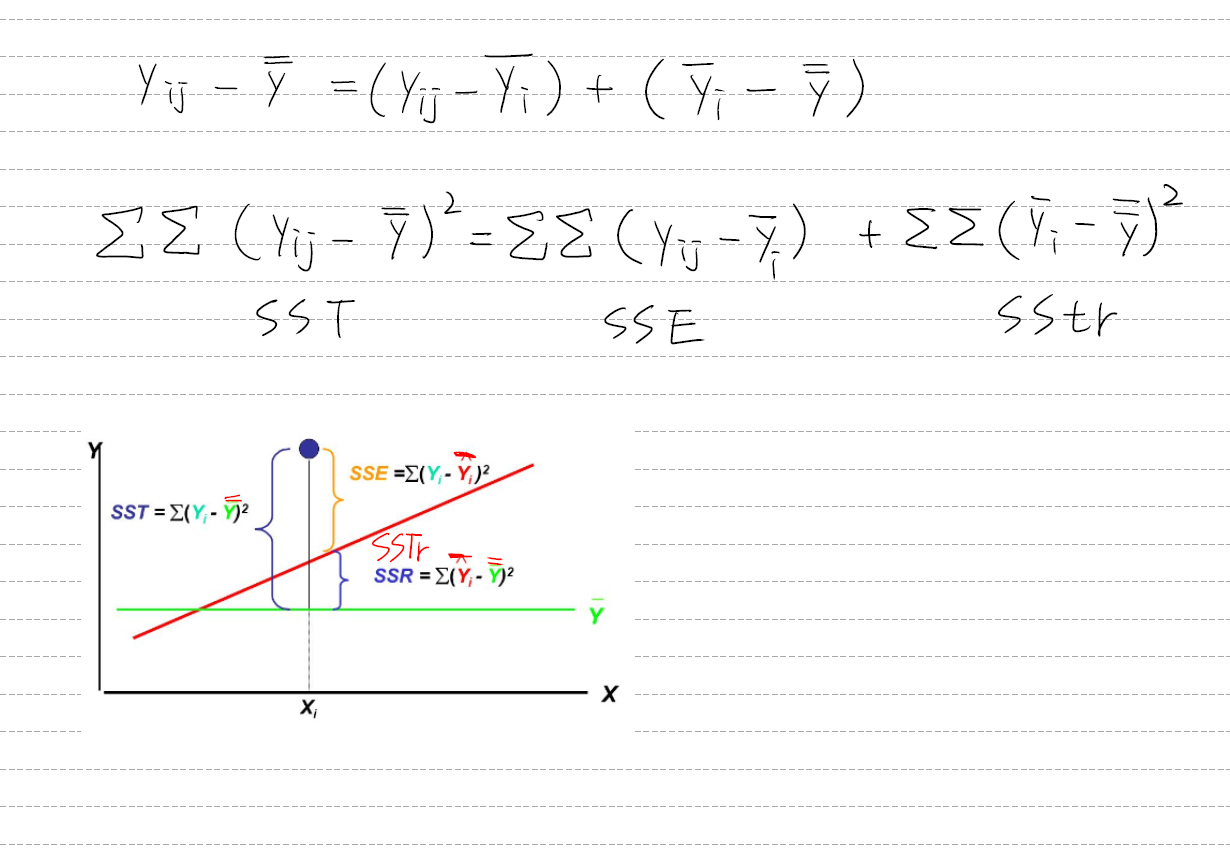 y_ij − y̿ = (y_ij − y̅_i) + (y̅_i − y̿)
∑∑(y_ij − y̿)² = ∑∑(y_ij − y̅_i) + ∑∑(y̅_i − y̿)²
SST SSE SStr
Y
SSE =∑(Y_i - Ŷ̅_i)²
SST = ∑(Y_i - Y̿)²
SSTr
SSR = ∑(Ŷ̅_i - Y̿)²
Y̅
X
X_i